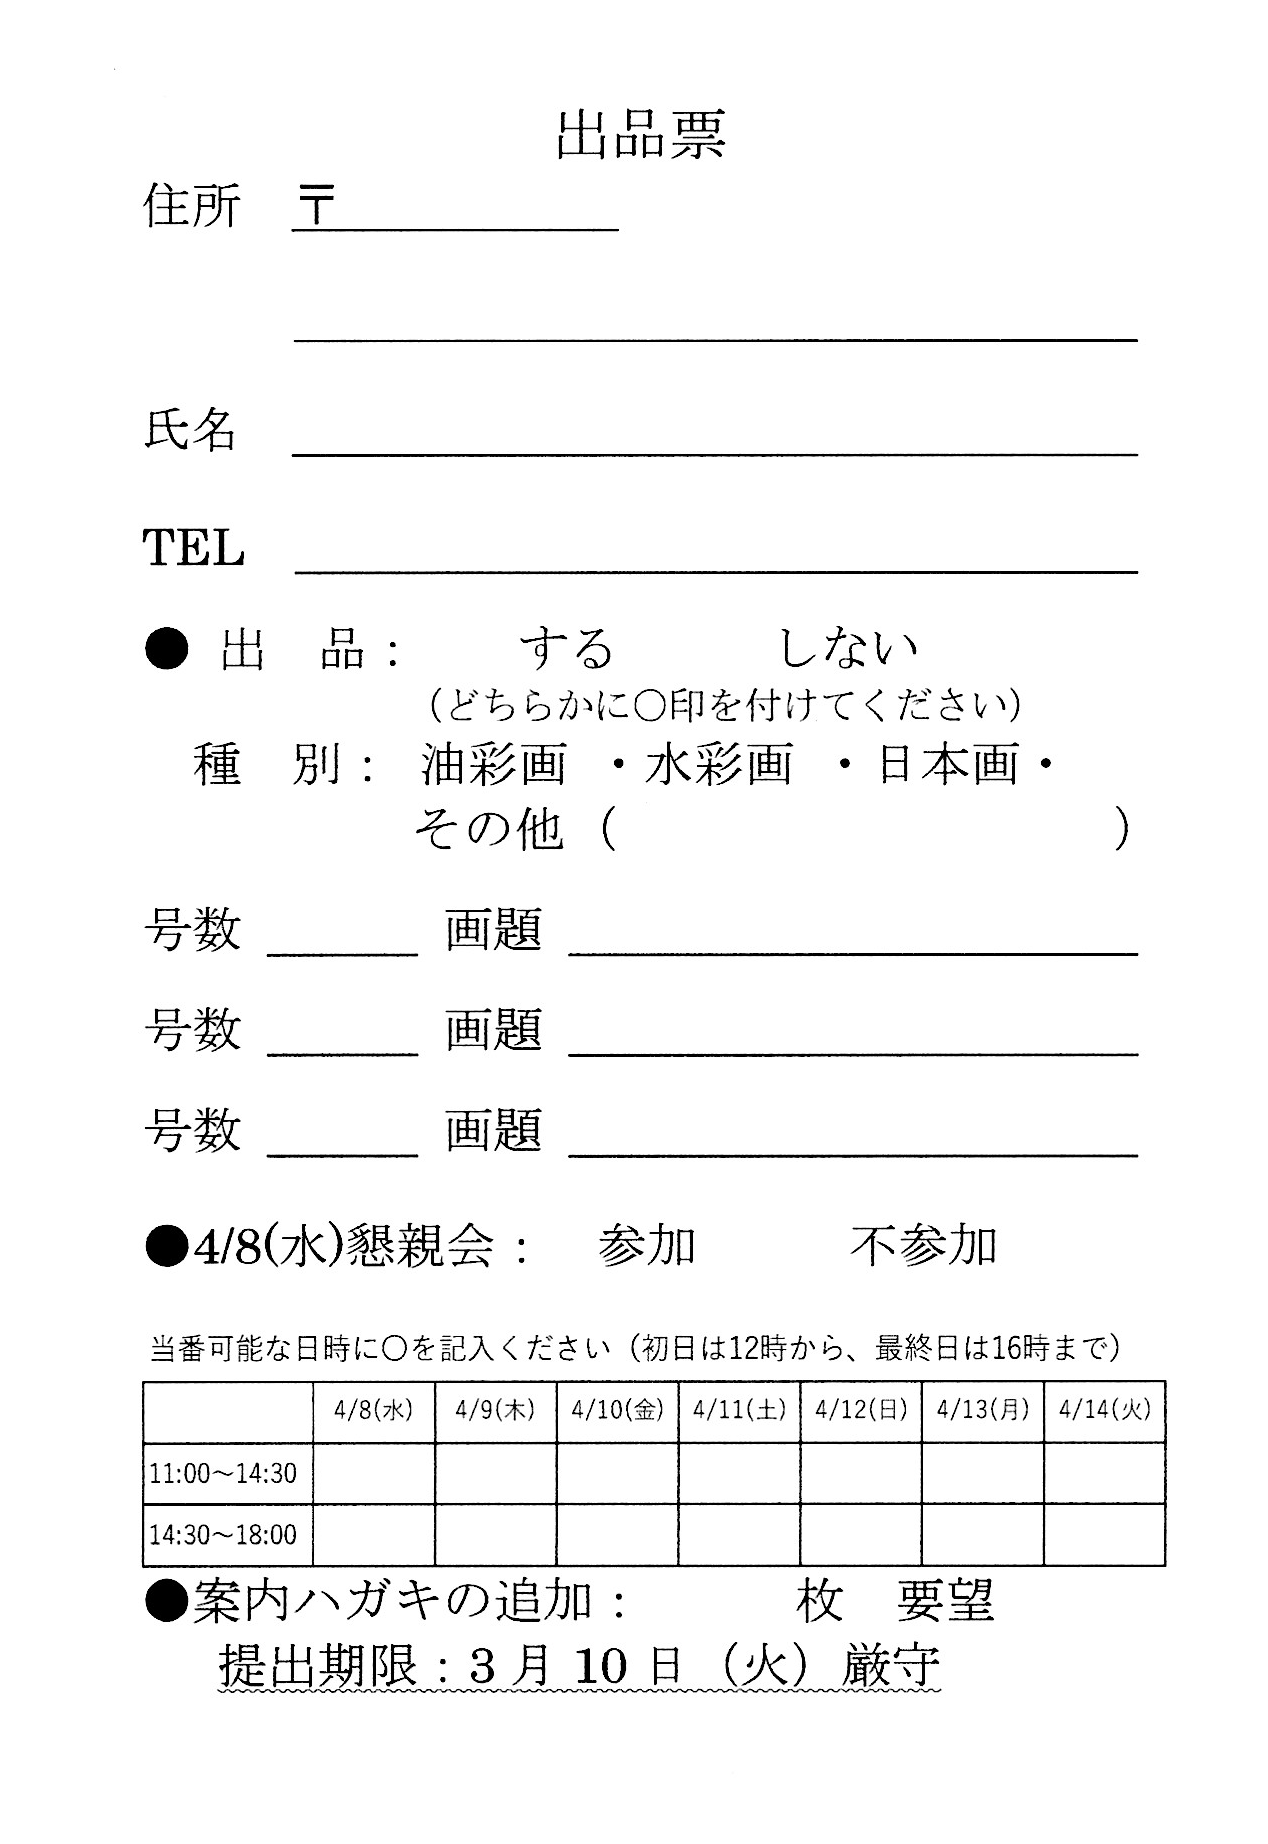 出品票
住所 〒
氏名
TEL
● 出 品： する しない
（どちらかに〇印を付けてください）
種 別： 油彩画 ・水彩画 ・日本画・
その他（ ）
号数 画題
号数 画題
号数 画題
●4/8(水)懇親会： 参加 不参加
当番可能な日時に〇を記入ください（初日は12時から、最終日は16時まで）
4/8(水) 4/9(木) 4/10(金) 4/11(土) 4/12(日) 4/13(月) 4/14(火)
11:00～14:30
14:30～18:00
●案内ハガキの追加： 枚 要望
提出期限：3 月 10 日（火）厳守